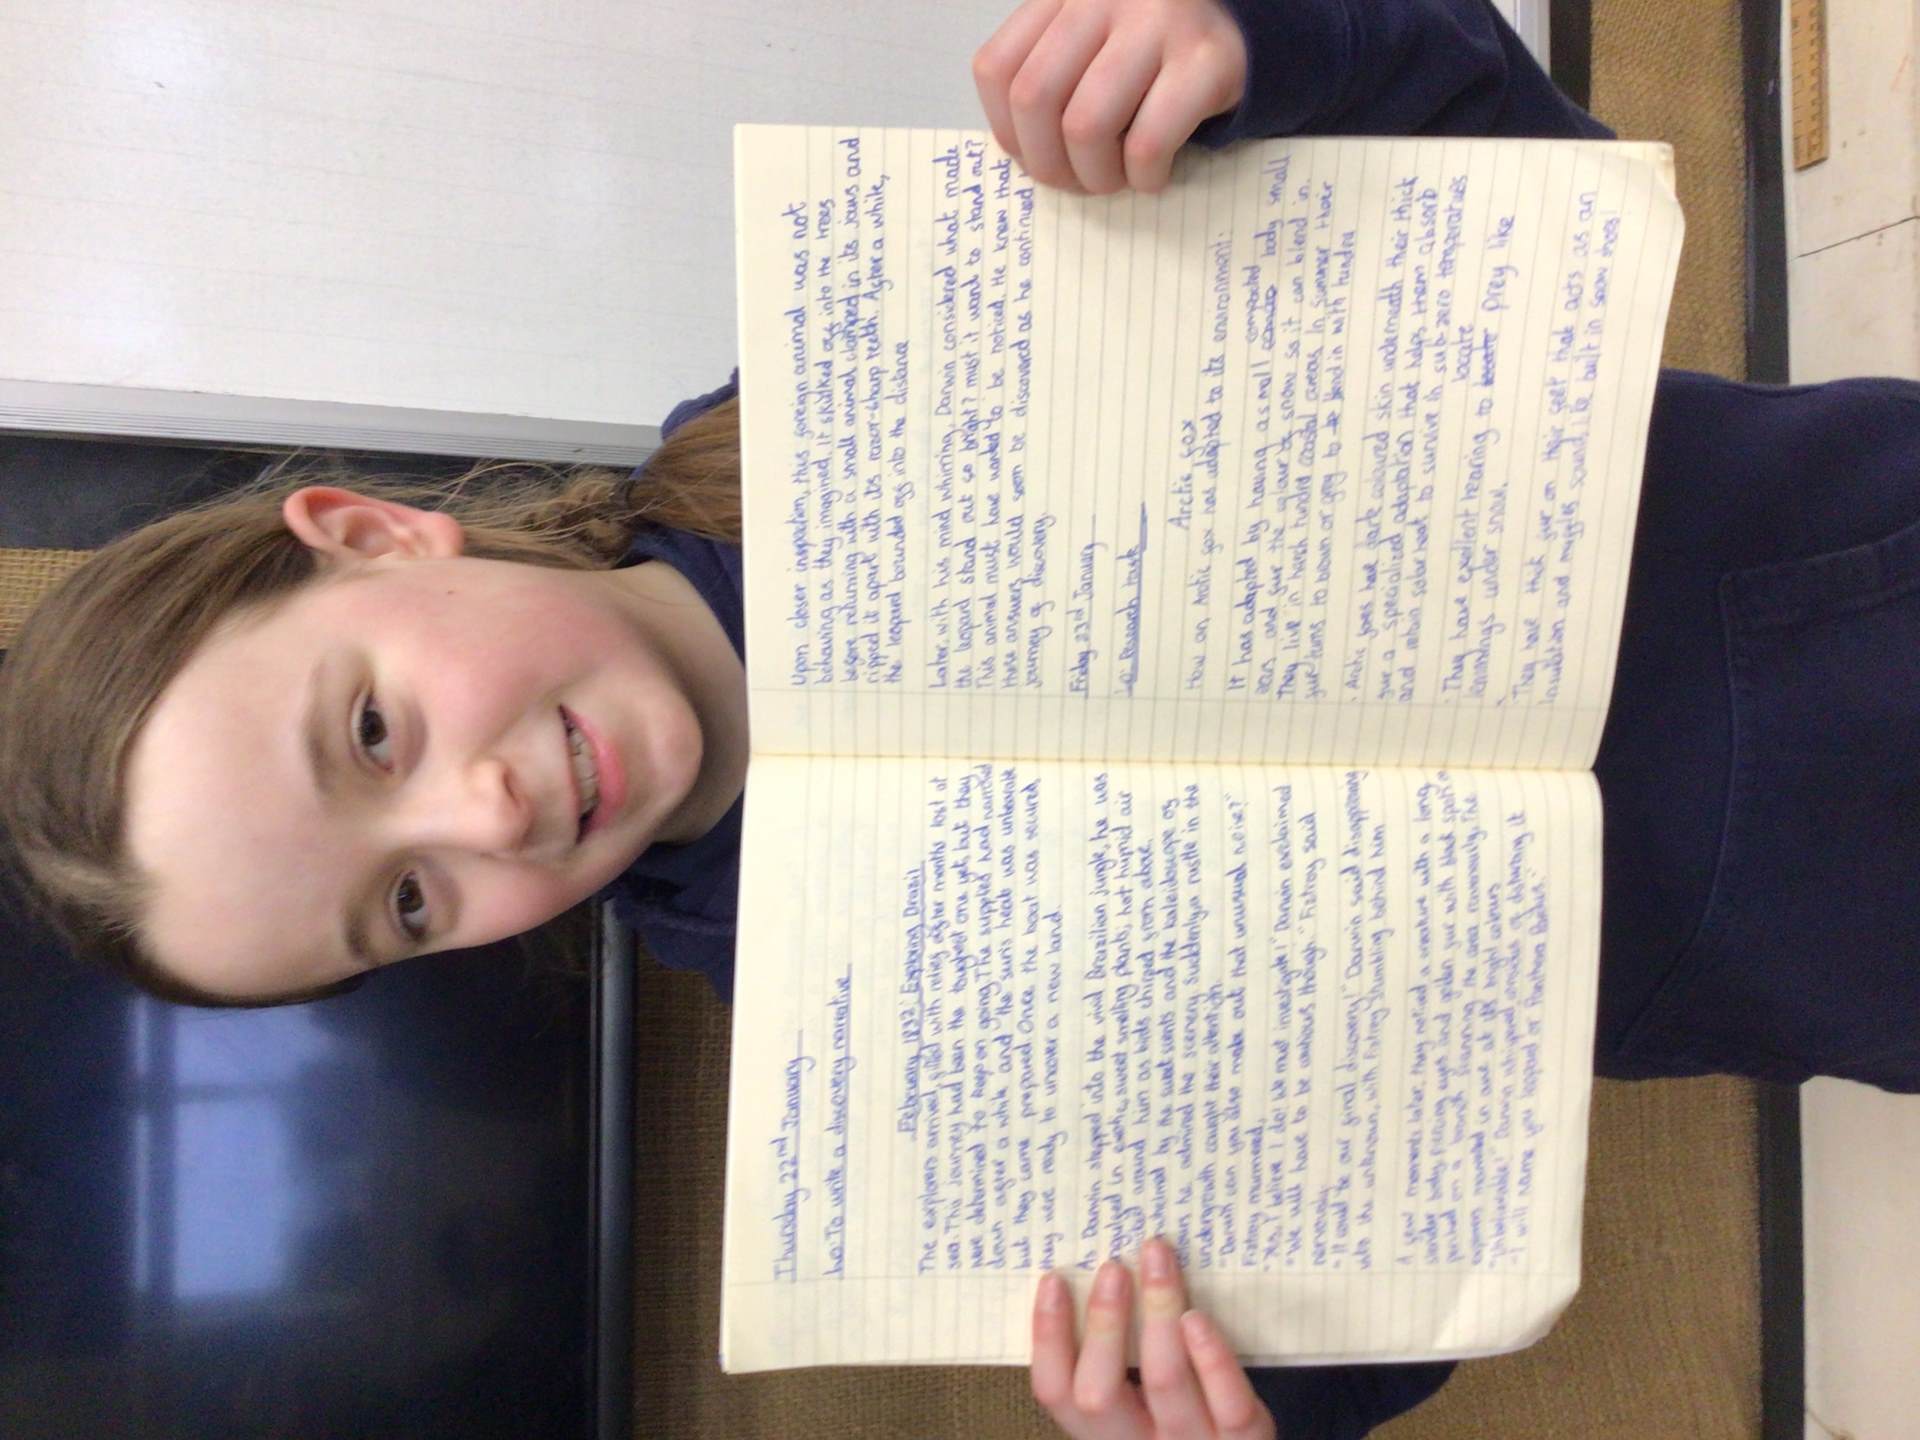 Thursday 22nd January
L.o: To write a discovery narrative
February 1832: Exploring Brazil
The explorers arrived filled with relief after months lost at
sea. This journey had been the toughest one yet but they
were determined to keep on going. The supplies had
down after a while and the sun's heat was unbearable
but they came prepared. Once the boat was secured,
they were ready to uncover a new land.
As Darwin stepped into the vivid Brazilian jungle, he was
engulfed in exotic, sweet smelling plants; hot humid air
around him as birds chirped from above.
by the sweet scents and the kaleidoscope of
he admired the scenery. Suddenly, a rustle in the
undergrowth caught their attention.
"Darwin can you also make out that unusual noise?"
Fitzroy murmered,
"Yes, I believe I do! We must investigate!" Darwin exclaimed
"We will have to be cautious though." Fitzroy said
nervously
"It could be our final discovery!" Darwin said disappearing
into the unknown, with Fitzroy stumbling behind him
A few moments later, they noticed a creature with a long
slender body, piercing eyes and golden fur with black spots
perched on a branch scanning the area ravenously. The
explorers marveled in awe at its bright colours
"Unbelievable!" Darwin whispered, consious of disturbing it
"I will name you leopard or Panthera Pardus."
Upon closer inspection, this foreign animal was not
behaving as they imagined. It stalked off into the trees
before returning with a small animal clamped in its jaws and
ripped it apart with its razor-sharp teeth. After a while,
the leopard bounded off into the distance
Later, with his mind whirring, Darwin considered what made
the leopard stand out so bright? must it want to stand out?
This animal must have wanted to be noticed. He knew that
these answers would soon be discovered as he continued
journey of discovery.
Friday 23rd January
Lo: Research task
Arctic fox
How an Arctic fox has adapted to its environment.
It has adapted by having a small compacted body small
ears and fur the colour of snow so it can blend in.
They live in harsh tundra coastal areas. In Summer their
fur turns to brown or grey to blend in with tundra
• Arctic foxes have dark coloured skin underneath their thick
fur a specialized adaptation that helps them absorb
and retain solar heat to survive in sub-zero temperatures
• They have excellent hearing to locate prey like
lemmings under snow.
• They have thick fur on their feet that acts as an
insulation and muffles sound, like built in snow shoes!